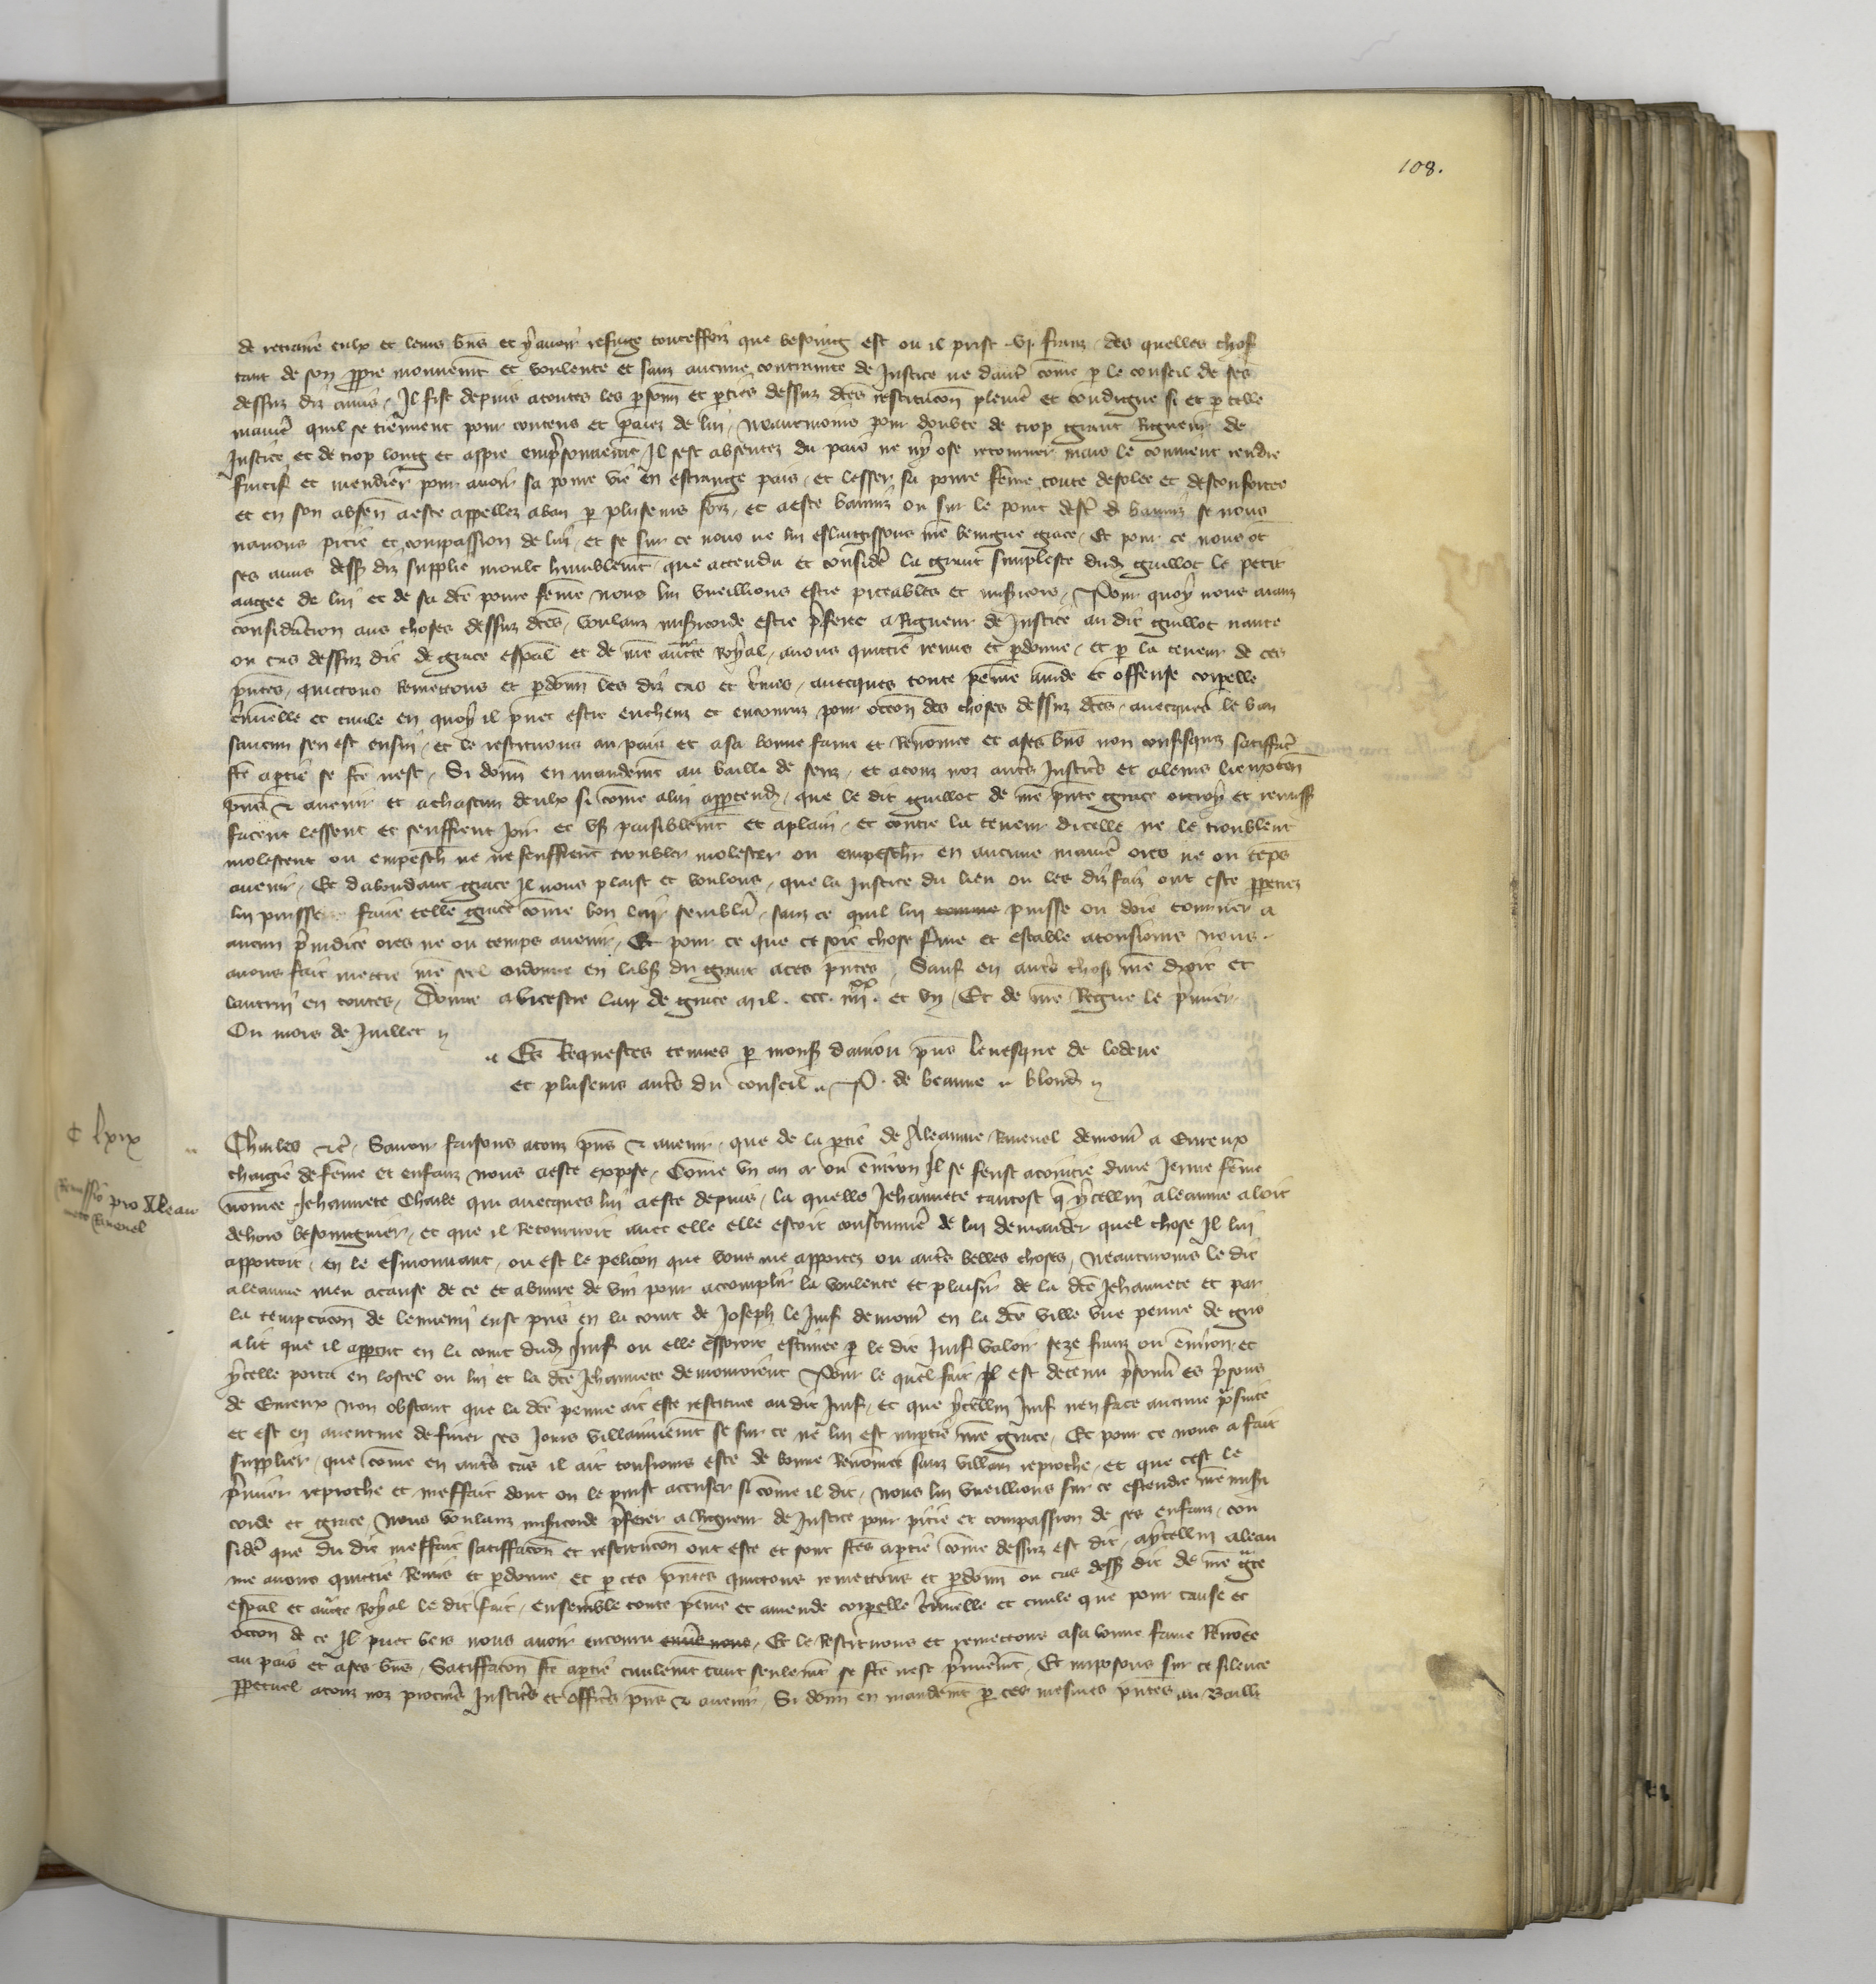 108.
de retraire eulx et leurs bn̄s et y avoir refuge toutesfois que besoing est ou il prist .vj. frans des quelles chos
tant de son ppre mouvem̄t et voulente et sanz aucune contrainte de Justice ne dautr̄ com̄e p le conseil de ses
dessuz diz amis. Il fist depuis a toutes les psonn̄ et pties dessuz dc̄es restitucōn pleniē et condigne si et p telle
manier̄ quil se tiennent pour contens et paiez de lui, neantmoins pour doubte de trop grant Rigueur de
Justice et de trop long et aspre emp̄sonnem̄t Il sest absentez du pais ne ny ose retourner mais le convient rendre
fuitif et mendier pour avoir sa povre vie en estrange pais, et lesser sa povre fem̄e toute desolee et desconfortee
et en son absen̄ a este appellez a ban p pluseurs foiz, et a este banniz ou sur le point dest̄ de banniz se nous
navons pitie et compassion de lui, et se sur ce nous ne lui eslargissons nr̄e benigne grace. Et pour ce nous ōt
ses amis dess diz supplie moult humblem̄t, que attendu et consider̄ la grant simplesce dud Guillot le petit
aagee de lui et de sa dc̄e povre fem̄e nous lui vueillions estre piteables et mis̄icors, Pour quoy nous aians
consideracion aus choses dessuz dc̄es, voulanz mis̄icorde estre p̄feree a Rigueur de Justice au dit guillot
ou cas dessuz dit de grace esp̄al et de nr̄e auct̄te Royal, avons quittie remis et pdonne, et p la teneur de ces
pn̄tes, quittons Remettons et pdonn̄ les diz cas et crimes, avecques toute peine am̄de et offense corpelle
crim̄elle et civile en quoy il puet estre encheuz et encouruz pour occōn des choses dessuz dc̄es, avecques le ban
saucun sen est ensui, et le restituons au pais et a sa bonne fame et Renom̄ee et a ses bn̄s non confisquez satiffac̄
fc̄e a ptie se fc̄e nest. Si donn̄ en mandem̄t au bailli de senz, et a touz noz autr̄s Justic̄s et a leurs lieuxten̄
pn̄s & avenir et a chascun deulx si com̄e a lui appartendr, que le dit guillot de nr̄e pn̄te grace ottroy et remiss
facent lessent et seuffrent joir et us paisiblem̄t et a plain, et contre la teneur dicelle ne le troublent
molestent ou empesch̄ ne ne seuffrent troubler molester ou empeschr̄ en aucune manier̄ ores ne ou tēps
avenir, Et dabondant grace Il nous plaist et voulons, que la Justice du lieu ou les diz faiz ont este ppetrez
lui puisse faire telle grace com̄e bon leur semblera, sanz ce quil lui tourne puisse ou doie tourner a
aucun p̄iudice ores ne ou temps avenir, Et pour ce que ce soit chose ferme et estable a tousiours nous
avons fait mettre nr̄e seel ordonne en labs̄ du grant a ces pn̄tes, Sauf en autr̄s chos̄ nr̄e droit et
lautrui en toutes, Donne a vicestre lan de grace mil. ccc. iiii.xx et vij, Et de nr̄e Regne le p̄mier
Ou mois de Juillet
Es Requestes tenues p mons̄ daniou pn̄s levesque de lodeve
et pluseurs autr̄s du conseil P. de beaune blond
C lxix
Charles &c̄. Savoir faisons a touz pn̄s & avenir, que de la ptie de Aleaume Ravenel demour̄ a Evreux
Remissio pro Aleau
me Ravenel
chargie de fem̄e et enfanz nous a este expose, Com̄e un an a ou environ Il se feust acointie dune Jeune fem̄e
nom̄ee Jehannete Charle qui avecques lui a este depuis, la quelle Jehannete tantost q̄ ycellui aleaume aloit
dehors besoingner, et que il Retournoit avec elle elle estoit coustumier̄ de lui demander quel chose Il lui
apportoit, en le esmouvant, ou est le pelicon que vous me apportez ou autr̄s belles choses, Neantmoins le dit
aleaume meu a cause de ce et abuvre de vin pour acomplir la voulente et plaisir de la dc̄e Jehannete et par
la temptacōn de lennemi eust pris en la court de Joseph le Juif demour̄ en la dc̄e ville une penne de gris
a lit que il apperceut en la court dud Juif ou elle essoroit estimee p le dit Juif valoir seze franz ou environ, et
ycelle porta en lostel ou lui et la dc̄e Jehannete demouroient Pour le quel fait Il est detenu p̄sonnier es p̄sons
de Evreux non obstant que la dc̄e penne ait este restituee au dit Juif, et que ycellui Juif nen face aucune p̄suite
et est en aventure de finer ses Jours villainem̄t se sur ce ne lui est imptie nr̄e grace, Et pour ce nous a fait
supplier, que com̄e en autr̄s cas il ait tousiours este de bonne Renom̄ee sanz villain reproche, et que cest le
p̄mier reproche et meffait dont on le puist accuser si com̄e il dit, Nous lui vueillions sur ce estendre nr̄e mis̄i
corde et grace, Nous voulanz mis̄icorde p̄ferer a Rigueur de Justice pour pitie et compassion de ses enfanz, con
sider̄ que du dit meffait satiffacōn et restitucōn ont este et sont fc̄es a ptie com̄e dessuz est dit, a ycellui aleau
me avons quittie Remis et pdonne et p ces pn̄tes quittons remettons et pdonn̄ ou cas dess dit de nr̄e gr̄ce
esp̄al et auct̄te Royal le dit fait, ensemble toute peine et amende corpelle crim̄elle et civile que pour cause et
occōn de ce Il puet vers nous avoir encouru envers nous, Et le Restituons et remettons a sa bonne fame Renōee
au pais et a ses bn̄s, Satiffacōn fc̄e a ptie civilem̄t tant seulem̄t se fc̄e nest p̄mierem̄t, Et imposons sur ce silence
ppetuel a touz noz procur̄s Justic̄s et offic̄s pn̄s & avenir, Si donn̄ en mandem̄t p ces mesmes pn̄tes au Bailli